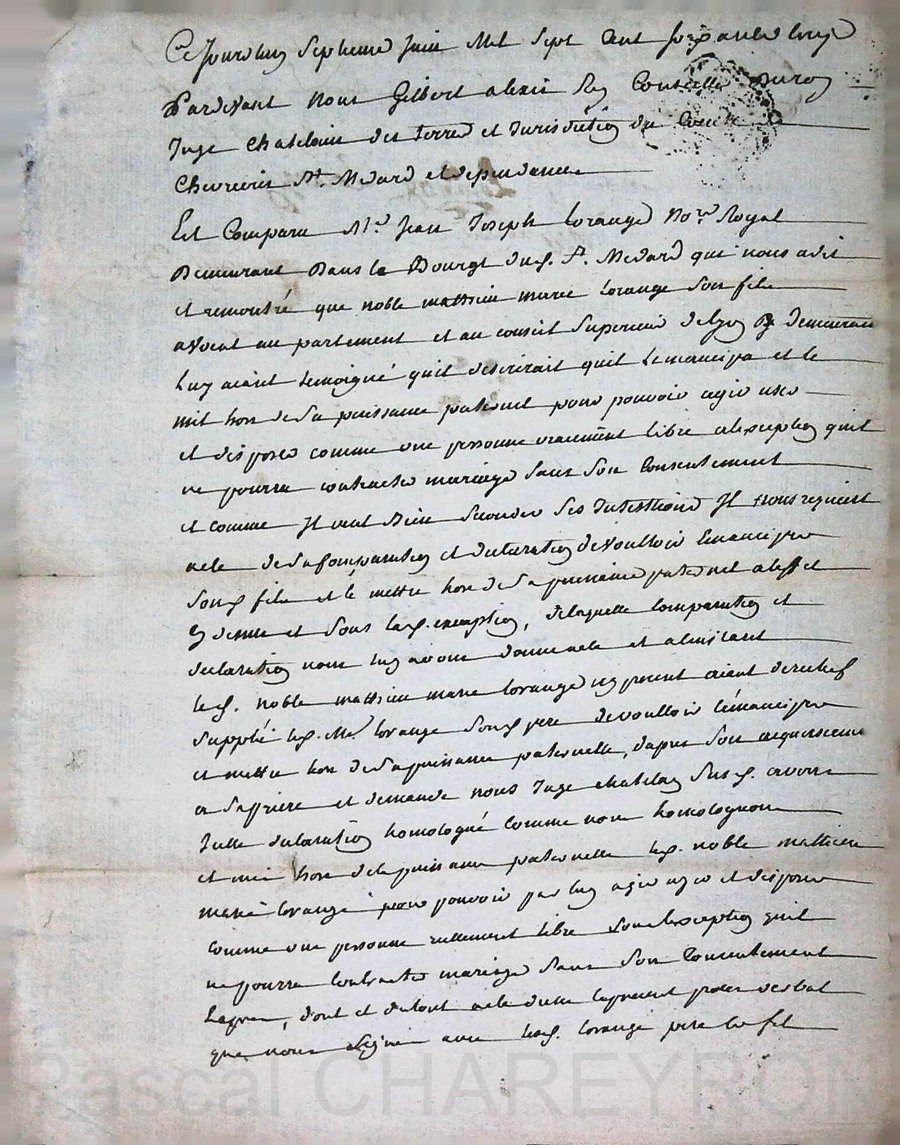 Ce Jourdhuy septieme Juin Mil Sept Cent soixante
Pardevant Nous Gilbert alexis Rey Conseiller Du roy
Juge Chatelain des terres et Jurisdiction de
Chevrieres St. Medard et dependances
Est Comparu Mr. Jean Joseph Lorange Nore. Royal
Demeurant Dans le Bourgt dud. St. Medard qui nous a dit
et remontré que noble mathieu marie Lorange son fils
avocat au parlement et au conseil superieur de Lyon y demeurant
Luy aiant temoigné quil desirerait quil Lemancipa et le
mit hors de sa puissance paternel pour pouvoir agir user
et disposer comme une personne vraiment libre alexception quil
ne pourra contracter mariage sans son Consentement
et comme Il veut Bien seconder ses Intentions Il nous requiert
acte de sa Comparution et declaration de voulloir Emanciper
sond. fils et le mettre hors de sa puissance paternel a leffet
cy dessus et sous lad. exception, de laquelle Comparution et
declaration nous luy avons donné acte et a linstant
led. noble mathieu marie Lorange icy present aiant derechef
supplié led. Me. Lorange sond. pere de voulloir Lémanciper
et mettre hors de sa puissance paternelle, dapres son acquiescement
a sa priere et demande nous Juge chatelain susd. avons
Icelle declaration homologué comme nous homologuons
et mis hors de la puissance paternelle led. noble mathieu
marie Lorange pour pouvoir par luy agir user et disposer
comme une personne reellement libre sous lexception quil
ne pourra Contracter mariage sans son Consentement
Expres, dont et du tout acte dresse le present proces verbal
que nous signé avec lesd. Lorange pere et fils
Pascal CHAREYRON